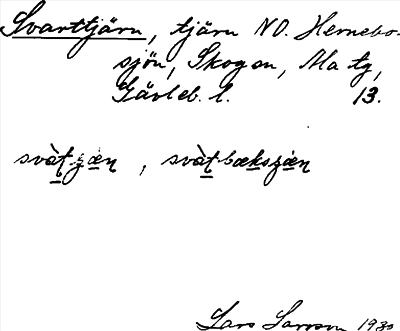 Svarttjärn, tjärn NO. Hernebo-
sjön, Skogen, Ma ty,
Gävleb. l. 13.
svàt̠ȥæ̀n̠, svàt̠bæk̠sȥæ̀n̠
Lars Larsson 1930